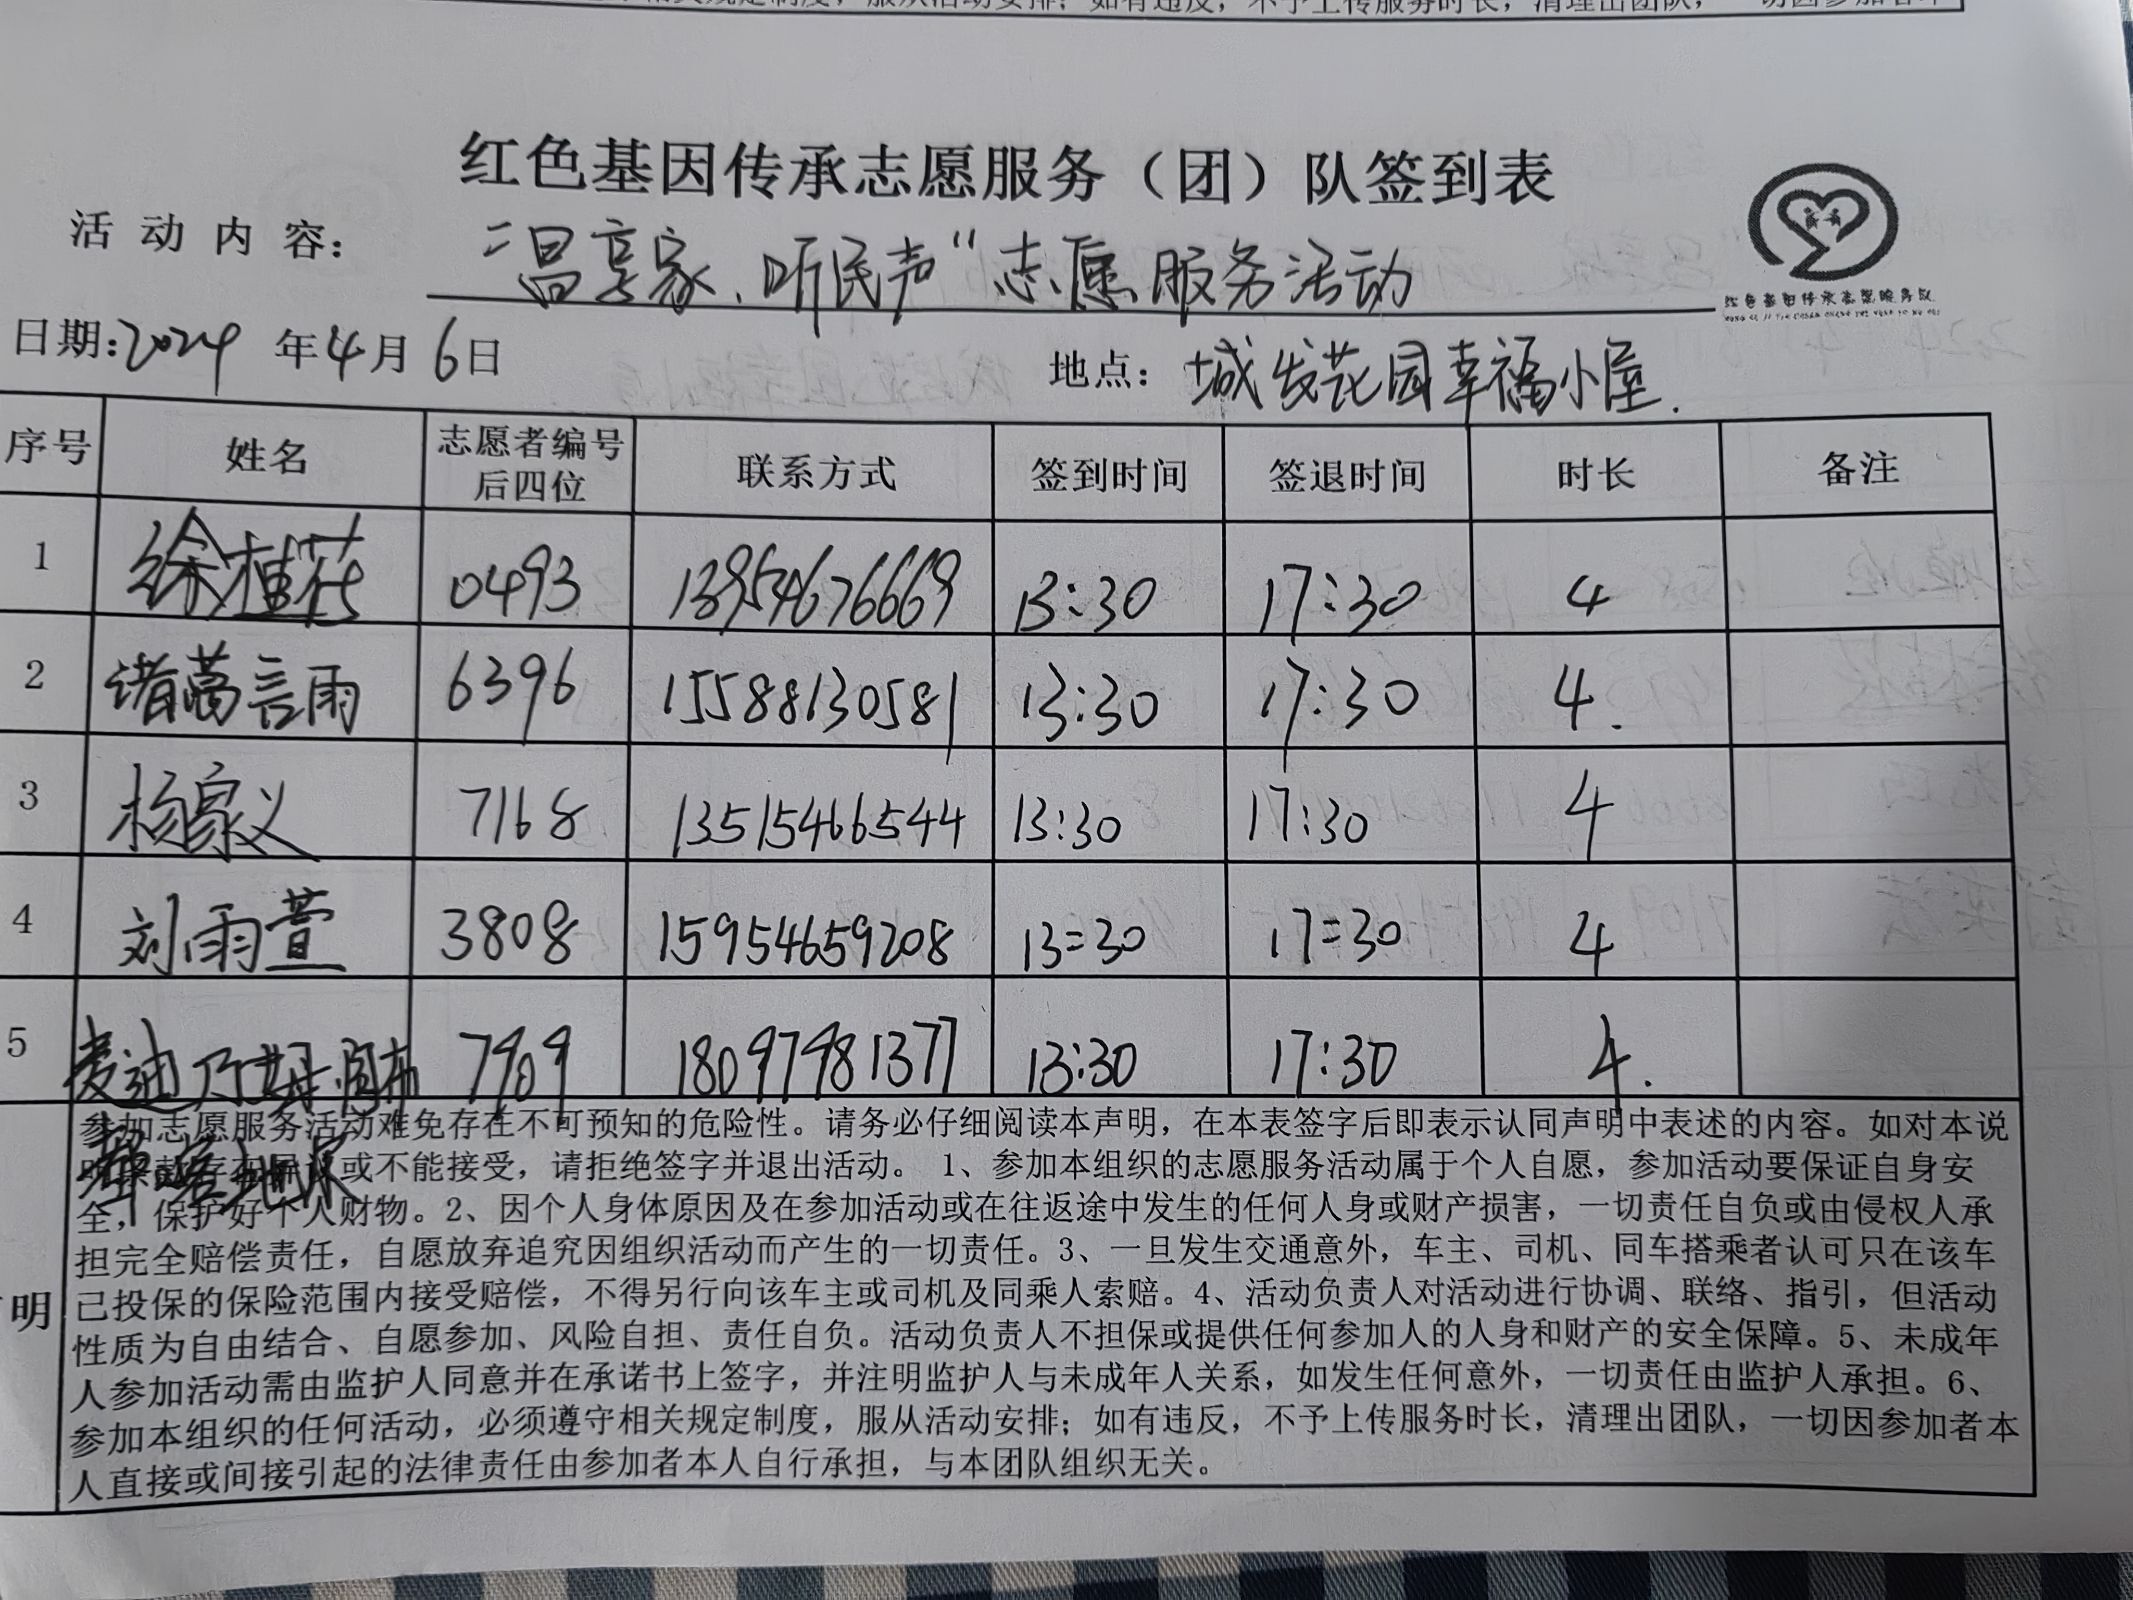 红色基因传承志愿服务（团）队签到表
活动内容： “昌享家、听民声“志愿服务活动
日期：2024年4月6日 地点：城发花园幸福小屋.
序号 姓名 志愿者编号后四位 联系方式 签到时间 签退时间 时长 备注
1 徐植花 0493 13954676669 13:30 17:30 4
2 诸葛言雨 6396 15588130581 13:30 17:30 4.
3 杨家义 7168 13515466544 13:30 17:30 4
4 刘雨萱 3808 15954659208 13=30 17=30 4
5 麦迪乃姆·阿布 7909 18097981377 13:30 17:30 4.
参加志愿服务活动难免存在不可预知的危险性。请务必仔细阅读本声明，在本表签字后即表示认同声明中表述的内容。如对本说
或不能接受，请拒绝签字并退出活动。 1、参加本组织的志愿服务活动属于个人自愿，参加活动要保证自身安
全，保护好个人财物。2、因个人身体原因及在参加活动或在往返途中发生的任何人身或财产损害，一切责任自负或由侵权人承
担完全赔偿责任，自愿放弃追究因组织活动而产生的一切责任。3、一旦发生交通意外，车主、司机、同车搭乘者认可只在该车
已投保的保险范围内接受赔偿，不得另行向该车主或司机及同乘人索赔。4、活动负责人对活动进行协调、联络、指引，但活动
明
性质为自由结合、自愿参加、风险自担、责任自负。活动负责人不担保或提供任何参加人的人身和财产的安全保障。5、未成年
人参加活动需由监护人同意并在承诺书上签字，并注明监护人与未成年人关系，如发生任何意外，一切责任由监护人承担。6、
参加本组织的任何活动，必须遵守相关规定制度，服从活动安排；如有违反，不予上传服务时长，清理出团队，一切因参加者本
人直接或间接引起的法律责任由参加者本人自行承担，与本团队组织无关。